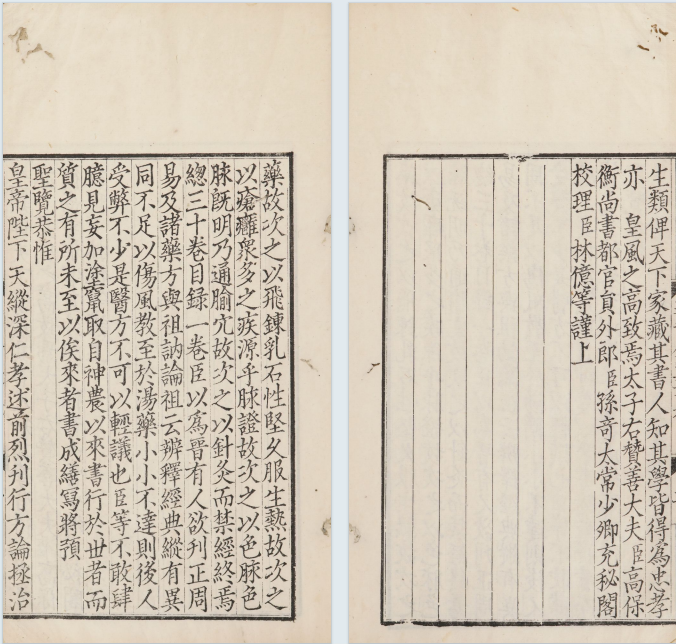 藥故次之以飛鍊乳石性堅久服生熱故次之
以瘡癰衆多之疾源乎脉證故次之以色脉色
脉既明乃通腧穴故次之以針灸而禁經終焉
總三十卷目録一卷臣以爲晉有人欲刊正周
易及諸藥方與祖訥論祖云辨釋經典縱有異
同不足以傷風教至於湯藥小小不達則後人
受弊不少是醫方不可以輕議也臣等不敢肆
臆見妄加塗竄取自神農以來書行於世者而
質之有所未至以俟來者書成繕寫將預
聖覽恭惟
皇帝陛下天縱深仁孝述前烈刊行方論拯治
生類俾天下家藏其書人知其學皆得爲忠孝
亦 皇風之高致焉太子右贊善大夫臣高保
衡尚書都官員外郎臣孫奇太常少卿充秘閣
校理臣林億等謹上